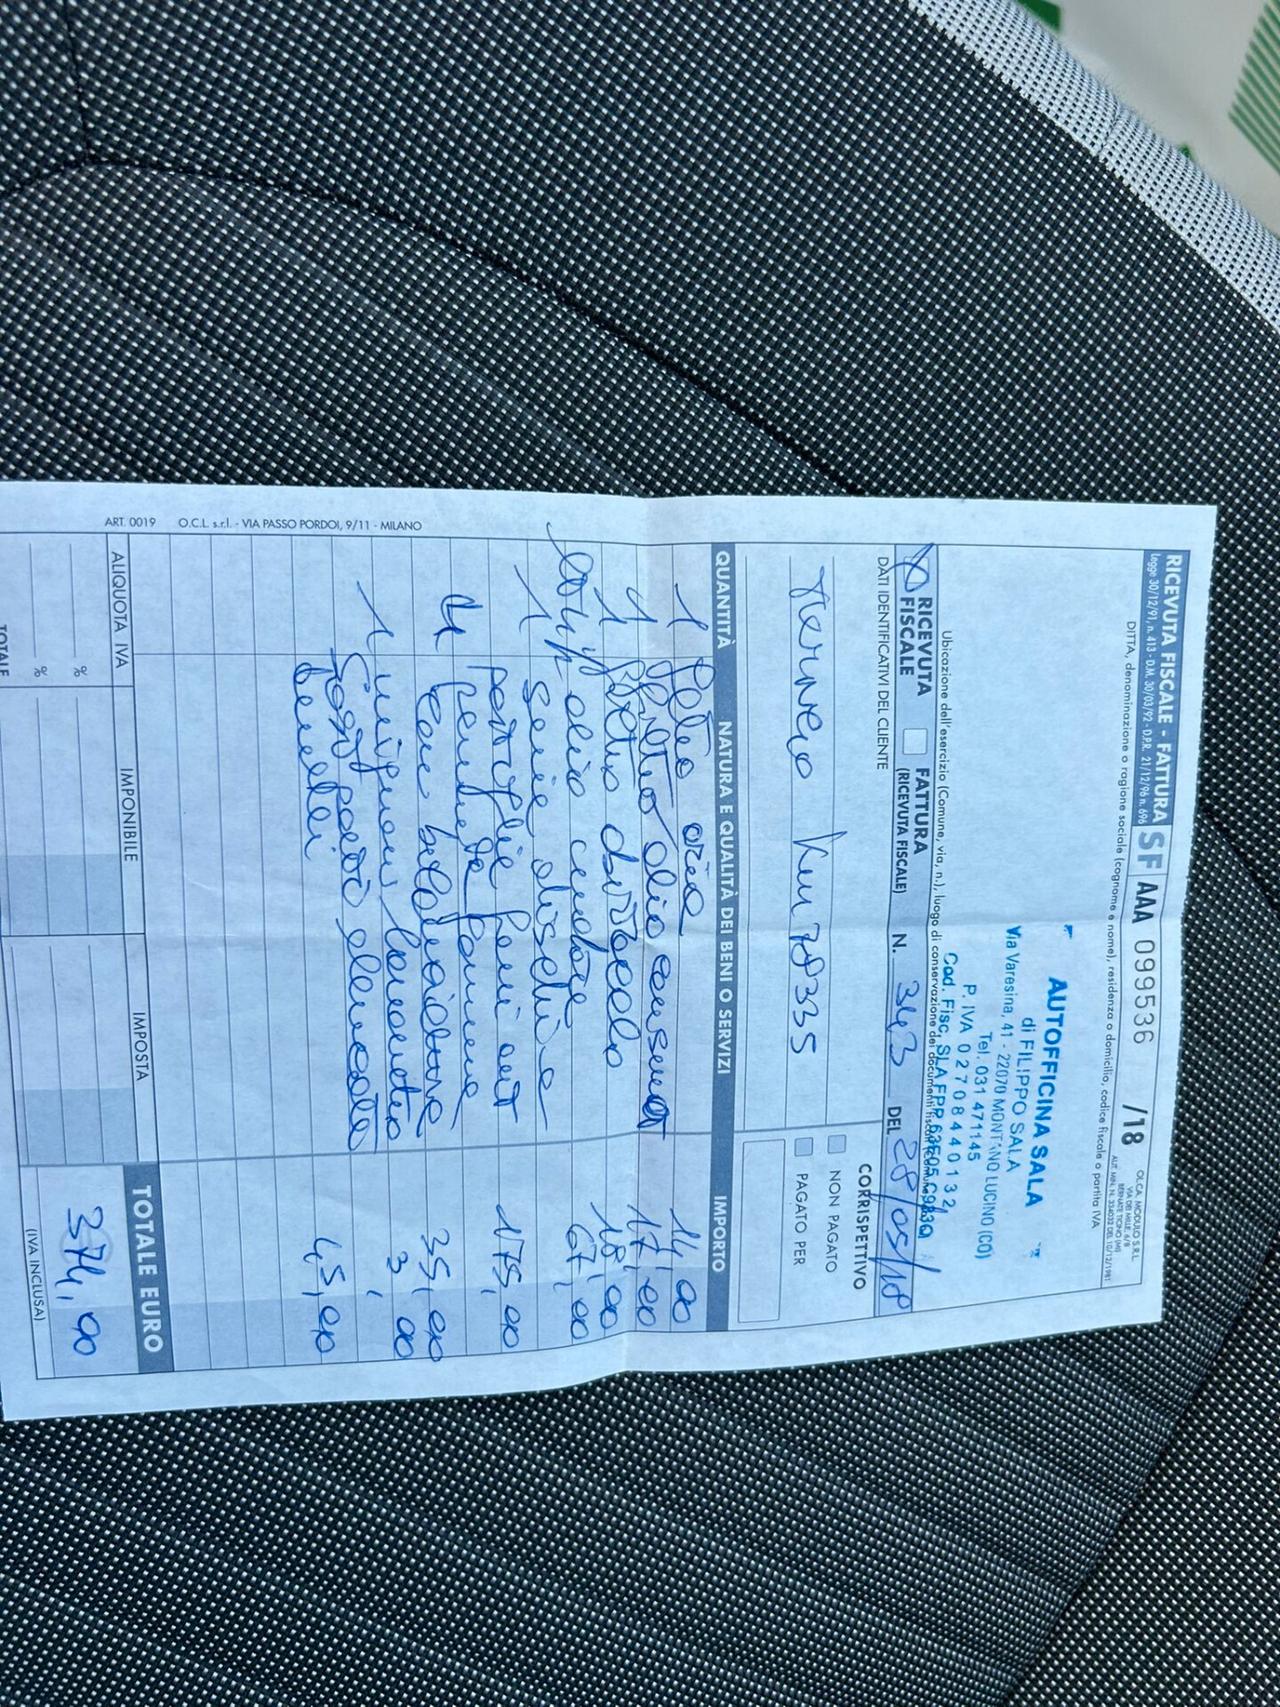 RICEVUTA FISCALE - FATTURA SF AAA 099536 /18
Legge 30/12/91, n. 413 - D.M. 30/03/92 - D.P.R. 21/12/96 n. 696
OLCA. MODULO S.R.L.
VIA DEI MILLE, 6/8
BERNATE TICINO (MI)
DITTA, denominazione o ragione sociale (cognome e nome), residenza o domicilio, codice fiscale o partita IVA
AUTOFFICINA SALA
di FILIPPO SALA
Via Varesina, 41 - 22070 MONTANO LUCINO (CO)
Tel. 031 471145
P. IVA 02708440132
Cod. Fisc. SLA FPP
Ubicazione dell'esercizio (Comune, via, n.), luogo di conservazione dei documenti fiscali
RICEVUTA FISCALE FATTURA (RICEVUTA FISCALE) N. 343 DEL 28/05/18
DATI IDENTIFICATIVI DEL CLIENTE
CORRISPETTIVO
NON PAGATO
Km 78335
PAGATO PER
QUANTITÀ NATURA E QUALITÀ DEI BENI O SERVIZI IMPORTO
1 filtro aria 14,00
1 filtro olio 17,00
1 18,00
olio 67,00
1 serie dischi e
pastiglie freni ant 175,00
4 35,00
1 3,00
45,00
TOTALE EURO
ALIQUOTA IVA IMPONIBILE IMPOSTA
374,00
%
%
(IVA INCLUSA)
TOTALE
ART. 0019 O.C.L. s.r.l. - VIA PASSO PORDOI, 9/11 - MILANO